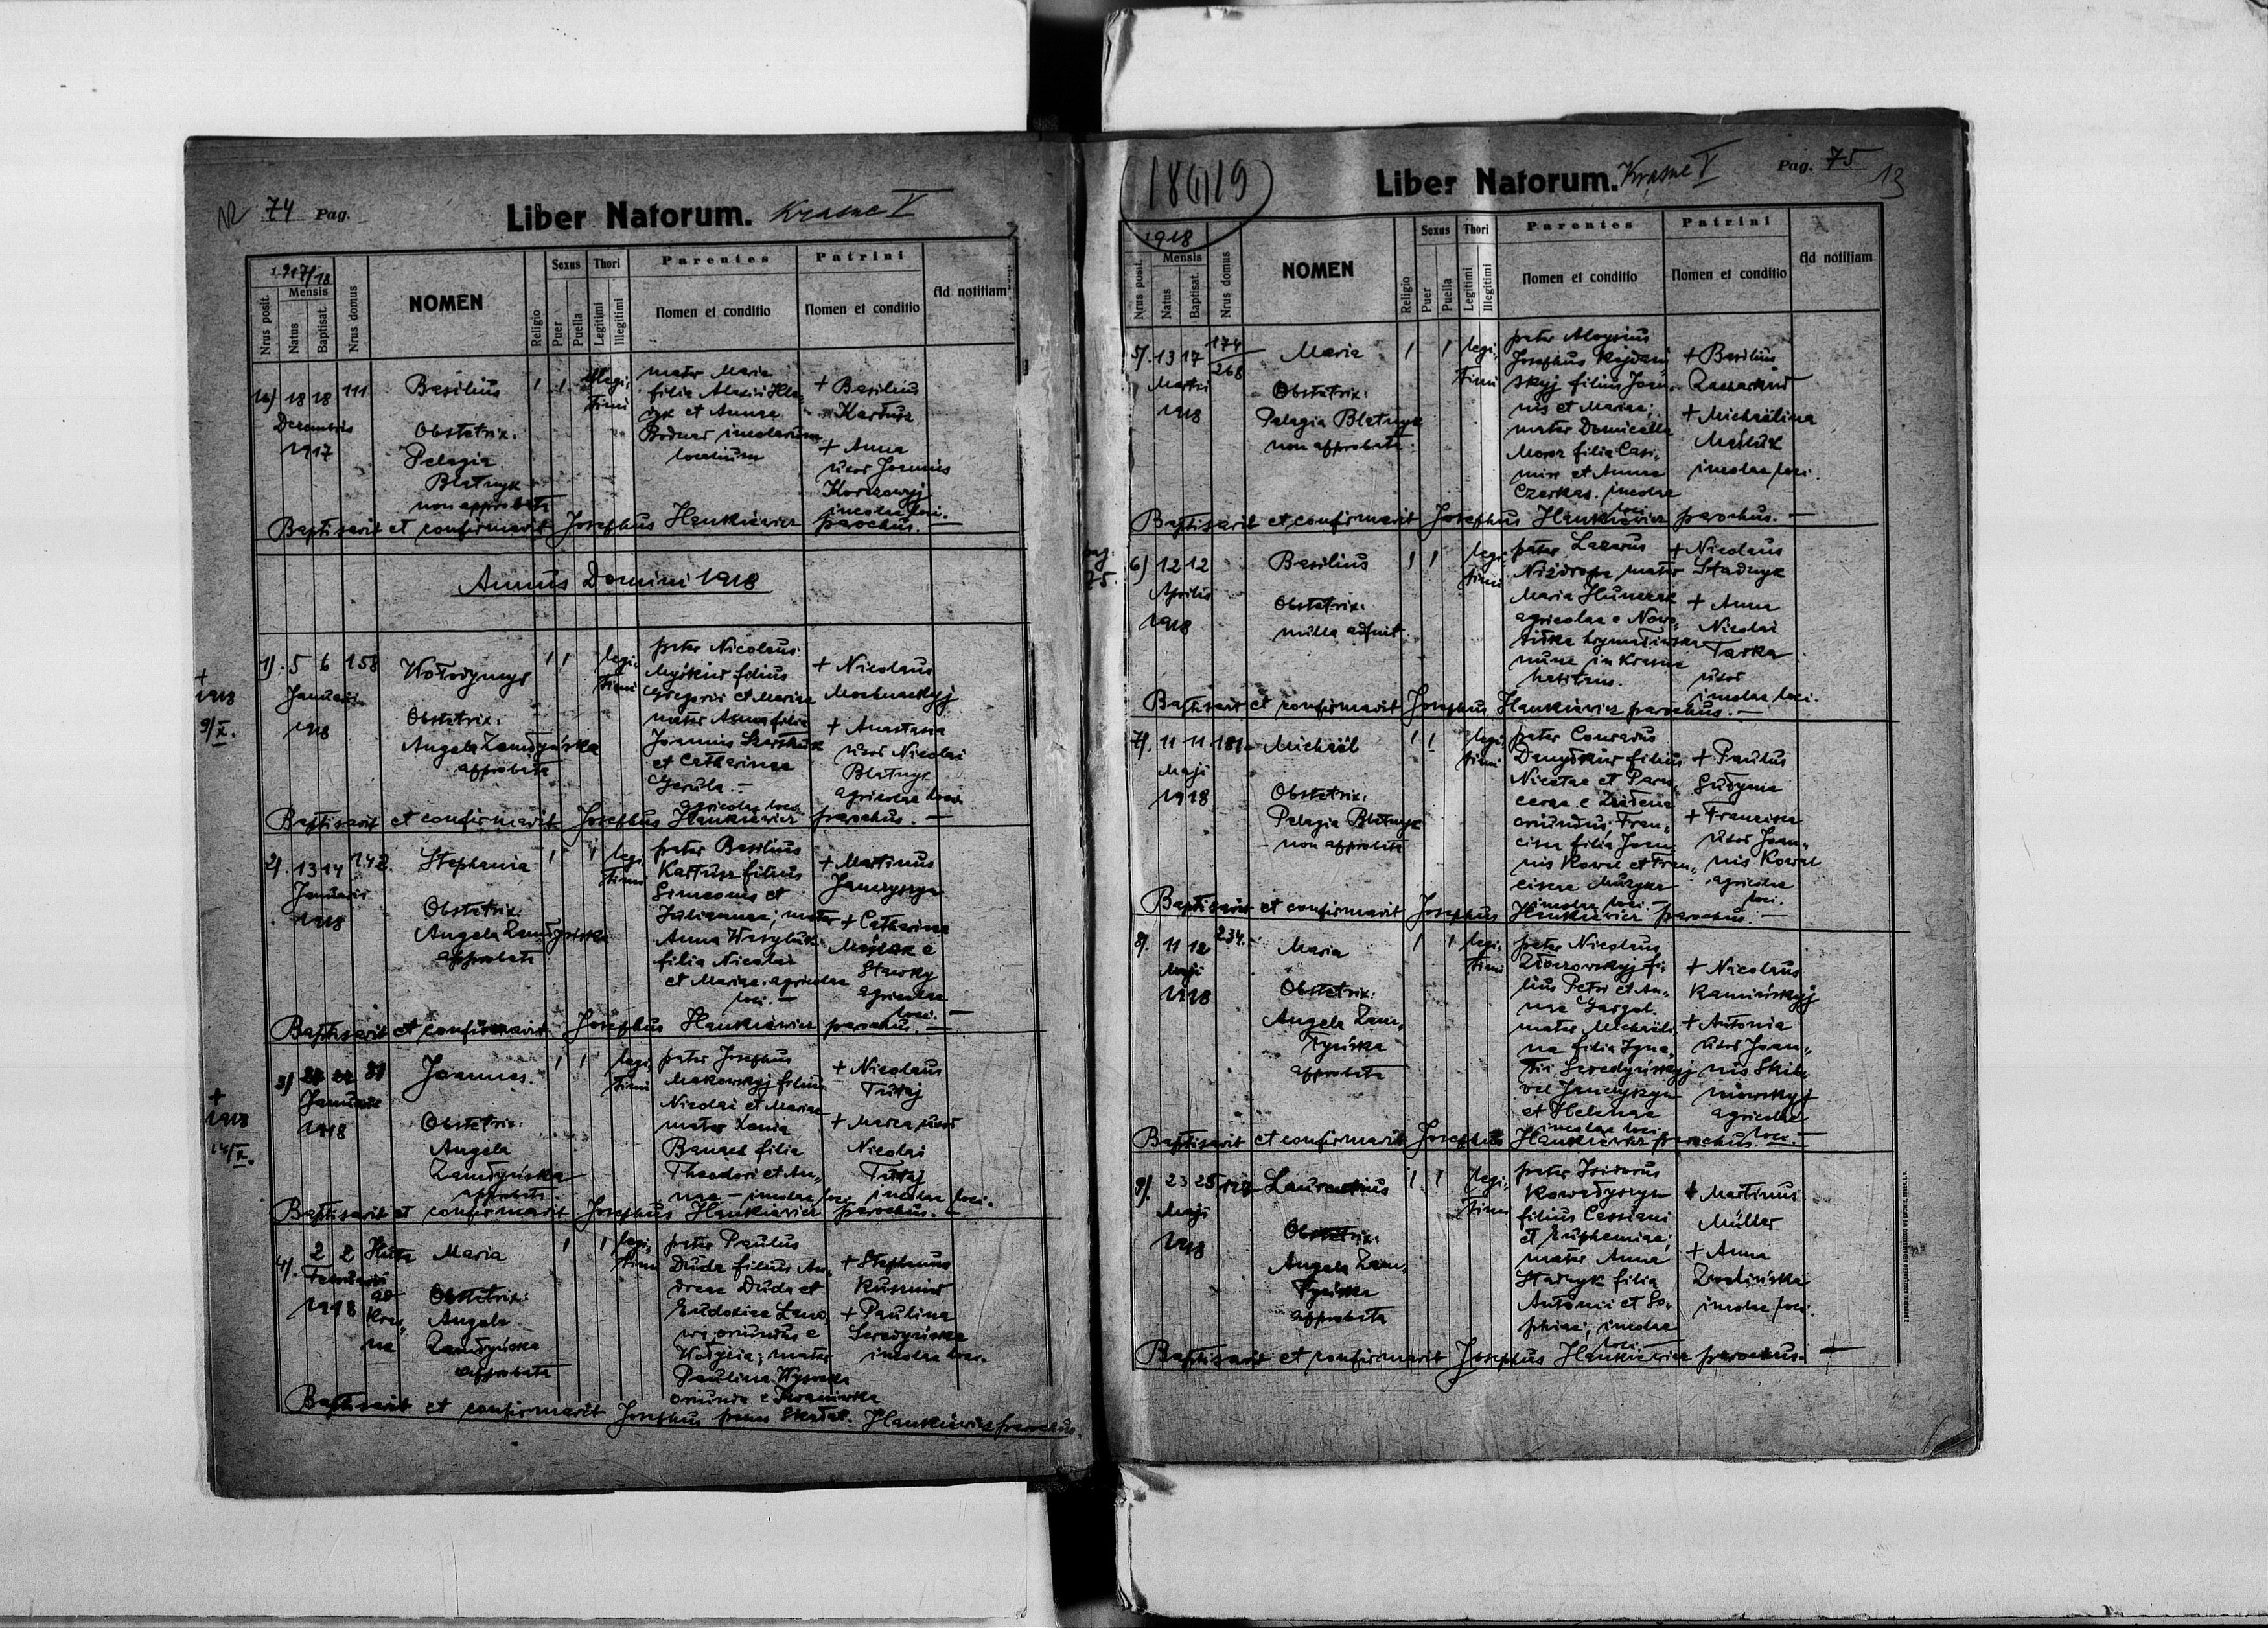 74 Pag.
Liber Natorum. Krasne V
1917/18
Nrus posit.
Mensis
Natus
Baptisat.
Nrus domus
NOMEN
Religio
Sexus
Puer
Puella
Thori
Legitimi
Illegitimi
Parentes
Nomen et conditio
Patrini
Nomen et conditio
Ad notitiam
18 18 111
Decembris
1917
Basilius
Obstetrix:
Pelagia
Blatnyk
non approbata
illegi-
timi
mater Maria
filia Alexii
et Annae
Bodnar incolarum
localium
+ Basilius
Kartusz
+ Anna
uxor Joannis
Korczowyj
incolae loci.
Baptisavit et confirmavit Josephus Hankiewicz parochus. —
Annus Domini 1918
+
1918
9/X.
1). 5 6 158
Januarii
1918
Wołodymyr
Obstetrix:
Angela Zamłyńska
approbata
legi-
timi
pater Nicolaus
Myśkiw filius
Gregorii et Mariae
mater Anna filia
Joannis
et Catharinae
Gerula. —
agricolae loci
+ Nicolaus
Mochnackyj
+ Anastasia
uxor Nicolai
Blatnyk
agricolae loci
Baptisavit et confirmavit Josephus Hankiewicz parochus. —
2). 13 14 142.
Januarii
1918
Stephania
Obstetrix:
Angela Zamłyńska
approbata
legi-
timi
pater Basilius
Kartusz filius
Simeonis et
Juliannae; mater
Anna Wasyluk
filia Nicolai
et Mariae. agricolae
loci. —
+ Martinus
Janczyszyn
+ Catharina
e
Stawky
agricolae
loci. —
Baptisavit et confirmavit Josephus Hankiewicz parochus. —
+
1918
14/X.
3)
Januarii
1918
Joannes.
Obstetrix:
Angela
Zamłyńska
approbata
legi-
timi
pater Josephus
Makowskyj filius
Nicolai et Mariae
mater Xenia
Banach filia
Theodori et An-
nae — incolae loci.
+ Nicolaus
Tutaj
+ Maria uxor
Nicolai
Tutaj
incolae loci.
Baptisavit et confirmavit Josephus Hankiewicz parochus. —
4). 2 2 Huta
Februarii ad
1918 Kras-
ne
Maria
Obstetrix:
Angela
Zamłyńska
approbata
legi-
timi
pater Paulus
Duda filius An-
dreae Duda et
Eudoxiae
oriundus e
mater
Paulina Wysocka
oriunda e
penes Skałat.
+ Stephanus
Kusznir
+ Paulina
Seredyńska
incolae loci.
Baptisavit et confirmavit Josephus Hankiewicz parochus.
186/19
Liber Natorum. Krasne V
Pag. 75
13
1918
Nrus posit.
Mensis
Natus
Baptisat.
Nrus domus
NOMEN
Religio
Sexus
Puer
Puella
Thori
Legitimi
Illegitimi
Parentes
Nomen et conditio
Patrini
Nomen et conditio
Ad notitiam
5). 13 17 174
268
Martii
1918
Maria
Obstetrix:
Pelagia Blatnyk
non approbata
legi-
timi
pater Aloysius
Josephus
skyj filius Joan-
nis et Mariae;
mater Domicella
Moroz filia Casi-
miri et Annae
Czerkas. incolae
loci
+ Basilius
+ Michaëlina
incolae loci.
Baptisavit et confirmavit Josephus Hankiewicz parochus. —
pag.
75.
6) 12 12
Aprilis
1918
Basilius
Obstetrix:
nulla adfuit
legi-
timi
pater Lazarus
mater
Maria
agricolae e Nowo-
nunc in Krasne
habitans.
+ Nicolaus
Stadnyk
+ Anna
Nicolai
Taska
uxor
incolae loci.
Baptisavit et confirmavit Josephus Hankiewicz parochus. —
7). 11 11 181
Maji
1918
Michaël
Obstetrix:
Pelagia Blatnyk
non approbata
legi-
timi
pater Conradus
Danyłkiw filius
Nicetae et Paras-
cevae e
oriundus; Fran-
cisca filia Joan-
nis Kowal et Fran-
ciscae Muzyka
incolae loci. —
+ Paulus
Sudyma
+ Francisca
uxor Joan-
nis Kowal
agricolae
loci.
Baptisavit et confirmavit Josephus Hankiewicz parochus. —
8). 11 12 234.
Maji
1918
Maria
Obstetrix:
Angela Zam-
łyńska
approbata
legi-
timi
pater Nicolaus
Złoczowskyj fi-
lius Petri et An-
nae Gargol.
mater Michaëli-
na filia Igna-
tii Seredyńskyj
vel Janczyszyn
et Helenae
incolae loci.
+ Nicolaus
Kamińskyj
+ Antonia
uxor Joan-
nis
agricolae
loci. —
Baptisavit et confirmavit Josephus Hankiewicz parochus.
9). 23 25
Maji
1918
Laurentius
Obstetrix:
Angela Zam-
łyńska
approbata
legi-
timi
pater Isidorus
Kowadyszyn
filius Cassiani
et Euphemiae;
mater Anna
Stadnyk filia
Antonii et So-
phiae; incolae
loci —
+ Martinus
Müller
+ Anna
Zwolińska
incolae loci.
Baptisavit et confirmavit Josephus Hankiewicz parochus. —